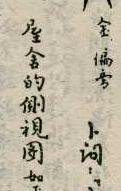 金 偏旁
卜詞:
屋舍的側視圖 如